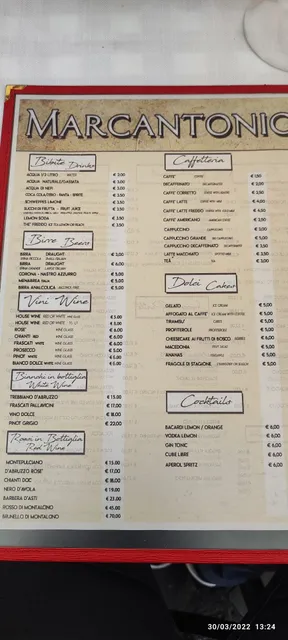 MARCANTONIO
Bibite Drinks
ACQUA 0.5 LITRO WATER € 2,00
ACQUA NATURALE/GASATA € 3,00
ACQUA DI NEPI € 3,00
COCA COLA/FANTA SPRITE € 3,50
SCHWEPPES LIMONE € 3,50
SUCCHI DI FRUTTA FRUIT JUICE € 3,50
LEMON SODA € 3,50
THE' FREDDO ICE TEA LEMON OR PEACH € 3,50
Birre Beers
BIRRA DRAUGHT € 5,00
BIRRA DRAUGHT € 6,00
CORONA - NASTRO AZZURRO € 5,00
MENABREA ITALIA € 5,00
BIRRA ANALCOLICA ALCOHOL FREE € 5,00
Vini Wine
HOUSE WINE RED OR WHITE
HOUSE WINE RED OR WHITE
ROSE' WINE GLASS € 6,00
CHIANTI RED WINE GLASS € 6,00
FRASCATI WHITE WINE GLASS € 6,00
PROSECCO WINE GLASS € 5,00
PINOT WHITE WINE GLASS
BIANCO DOLCE WINE GLASS € 6,00
Bianchi in bottiglia
White Wine
TREBBIANO D'ABRUZZO € 15,00
FRASCATI PALLAVICINI
VINO DOLCE € 18,00
PINOT GRIGIO € 22,00
Rossi in Bottiglia
Red Wine
MONTEPULCIANO € 15,00
D'ABRUZZO ROSE' € 17,00
CHIANTI DOC € 18,00
NERO D'AVOLA € 19,00
BARBERA D'ASTI € 23,00
ROSSO DI MONTALCINO € 45,00
BRUNELLO DI MONTALCINO € 70,00
Caffetteria
CAFFE' COFFEE
DECAFFEINATO DECAFFEINATED € 2,00
CAFFE' CORRETTO € 3,50
CAFFE' LATTE € 4,00
CAFFE' LATTE FREDDO € 4,00
CAFFE' AMERICANO € 3,50
CAPPUCCINO CAPPUCCINO
CAPPUCCINO GRANDE BIG CAPPUCCINO € 5,00
CAPPUCCINO DECAFFEINATO € 3,50
LATTE MACCHIATO € 3,50
TEA € 3,50
Dolci Cakes
GELATO ICE CREAM € 5,00
AFFOGATO AL CAFFE' ICE CREAM WITH COFFEE € 5,00
TIRAMISU' CAKES € 5,00
PROFITEROLE PROFITEROLES € 5,00
CHEESECAKE AI FRUTTI DI BOSCO € 5,00
MACEDONIA FRUIT SALAD € 5,00
ANANAS € 5,00
FRAGOLE DI STAGIONE € 5,00
Cocktails
BACARDI LEMON / ORANGE € 6,00
VODKA LEMON € 6,00
GIN TONIC € 6,00
CUBE LIBRE € 6,00
APEROL SPRITZ € 6,00
30/03/2022 13:24